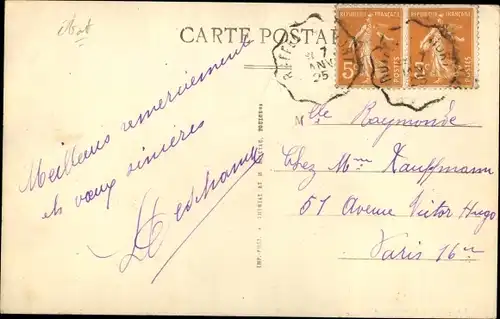 Etat
CARTE POSTALE
RÉPUBLIQUE FRANÇAISE
5c
POSTES
RÉPUBLIQUE FRANÇAISE
POSTES
7
JANV
25
Meilleurs remerciement
ets vœux sincères
Mlle Raymonde
Chez Mme Kauffmann
51 Avenue Victor Hugo
Paris 16e